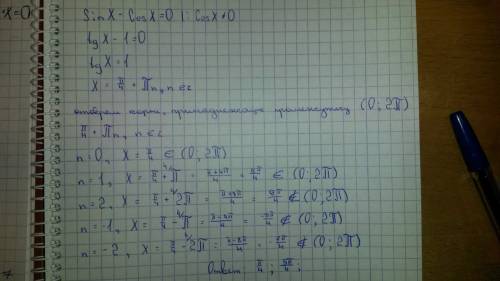 x=0
Sin X - Cos X = 0 | : Cos X ≠ 0
tg X - 1 = 0
tg X = 1
X = π/4 + πn, n ∈ z
отберем корни, принадлежащие промежутку (0; 2π)
π/4 + πn, n ∈ z
n = 0, X = π/4 ∈ (0; 2π)
n = 1, X = π/4 + π = (π+4π)/4 = 5π/4 ∈ (0; 2π)
n = 2, X = π/4 + 2π = (π+8π)/4 = 9π/4 ∉ (0; 2π)
n = -1, X = π/4 - π = (π-4π)/4 = -3π/4 ∉ (0; 2π)
n = -2, X = π/4 - 2π = (π-8π)/4 = -7π/4 ∉ (0; 2π)
Ответ: π/4; 5π/4;